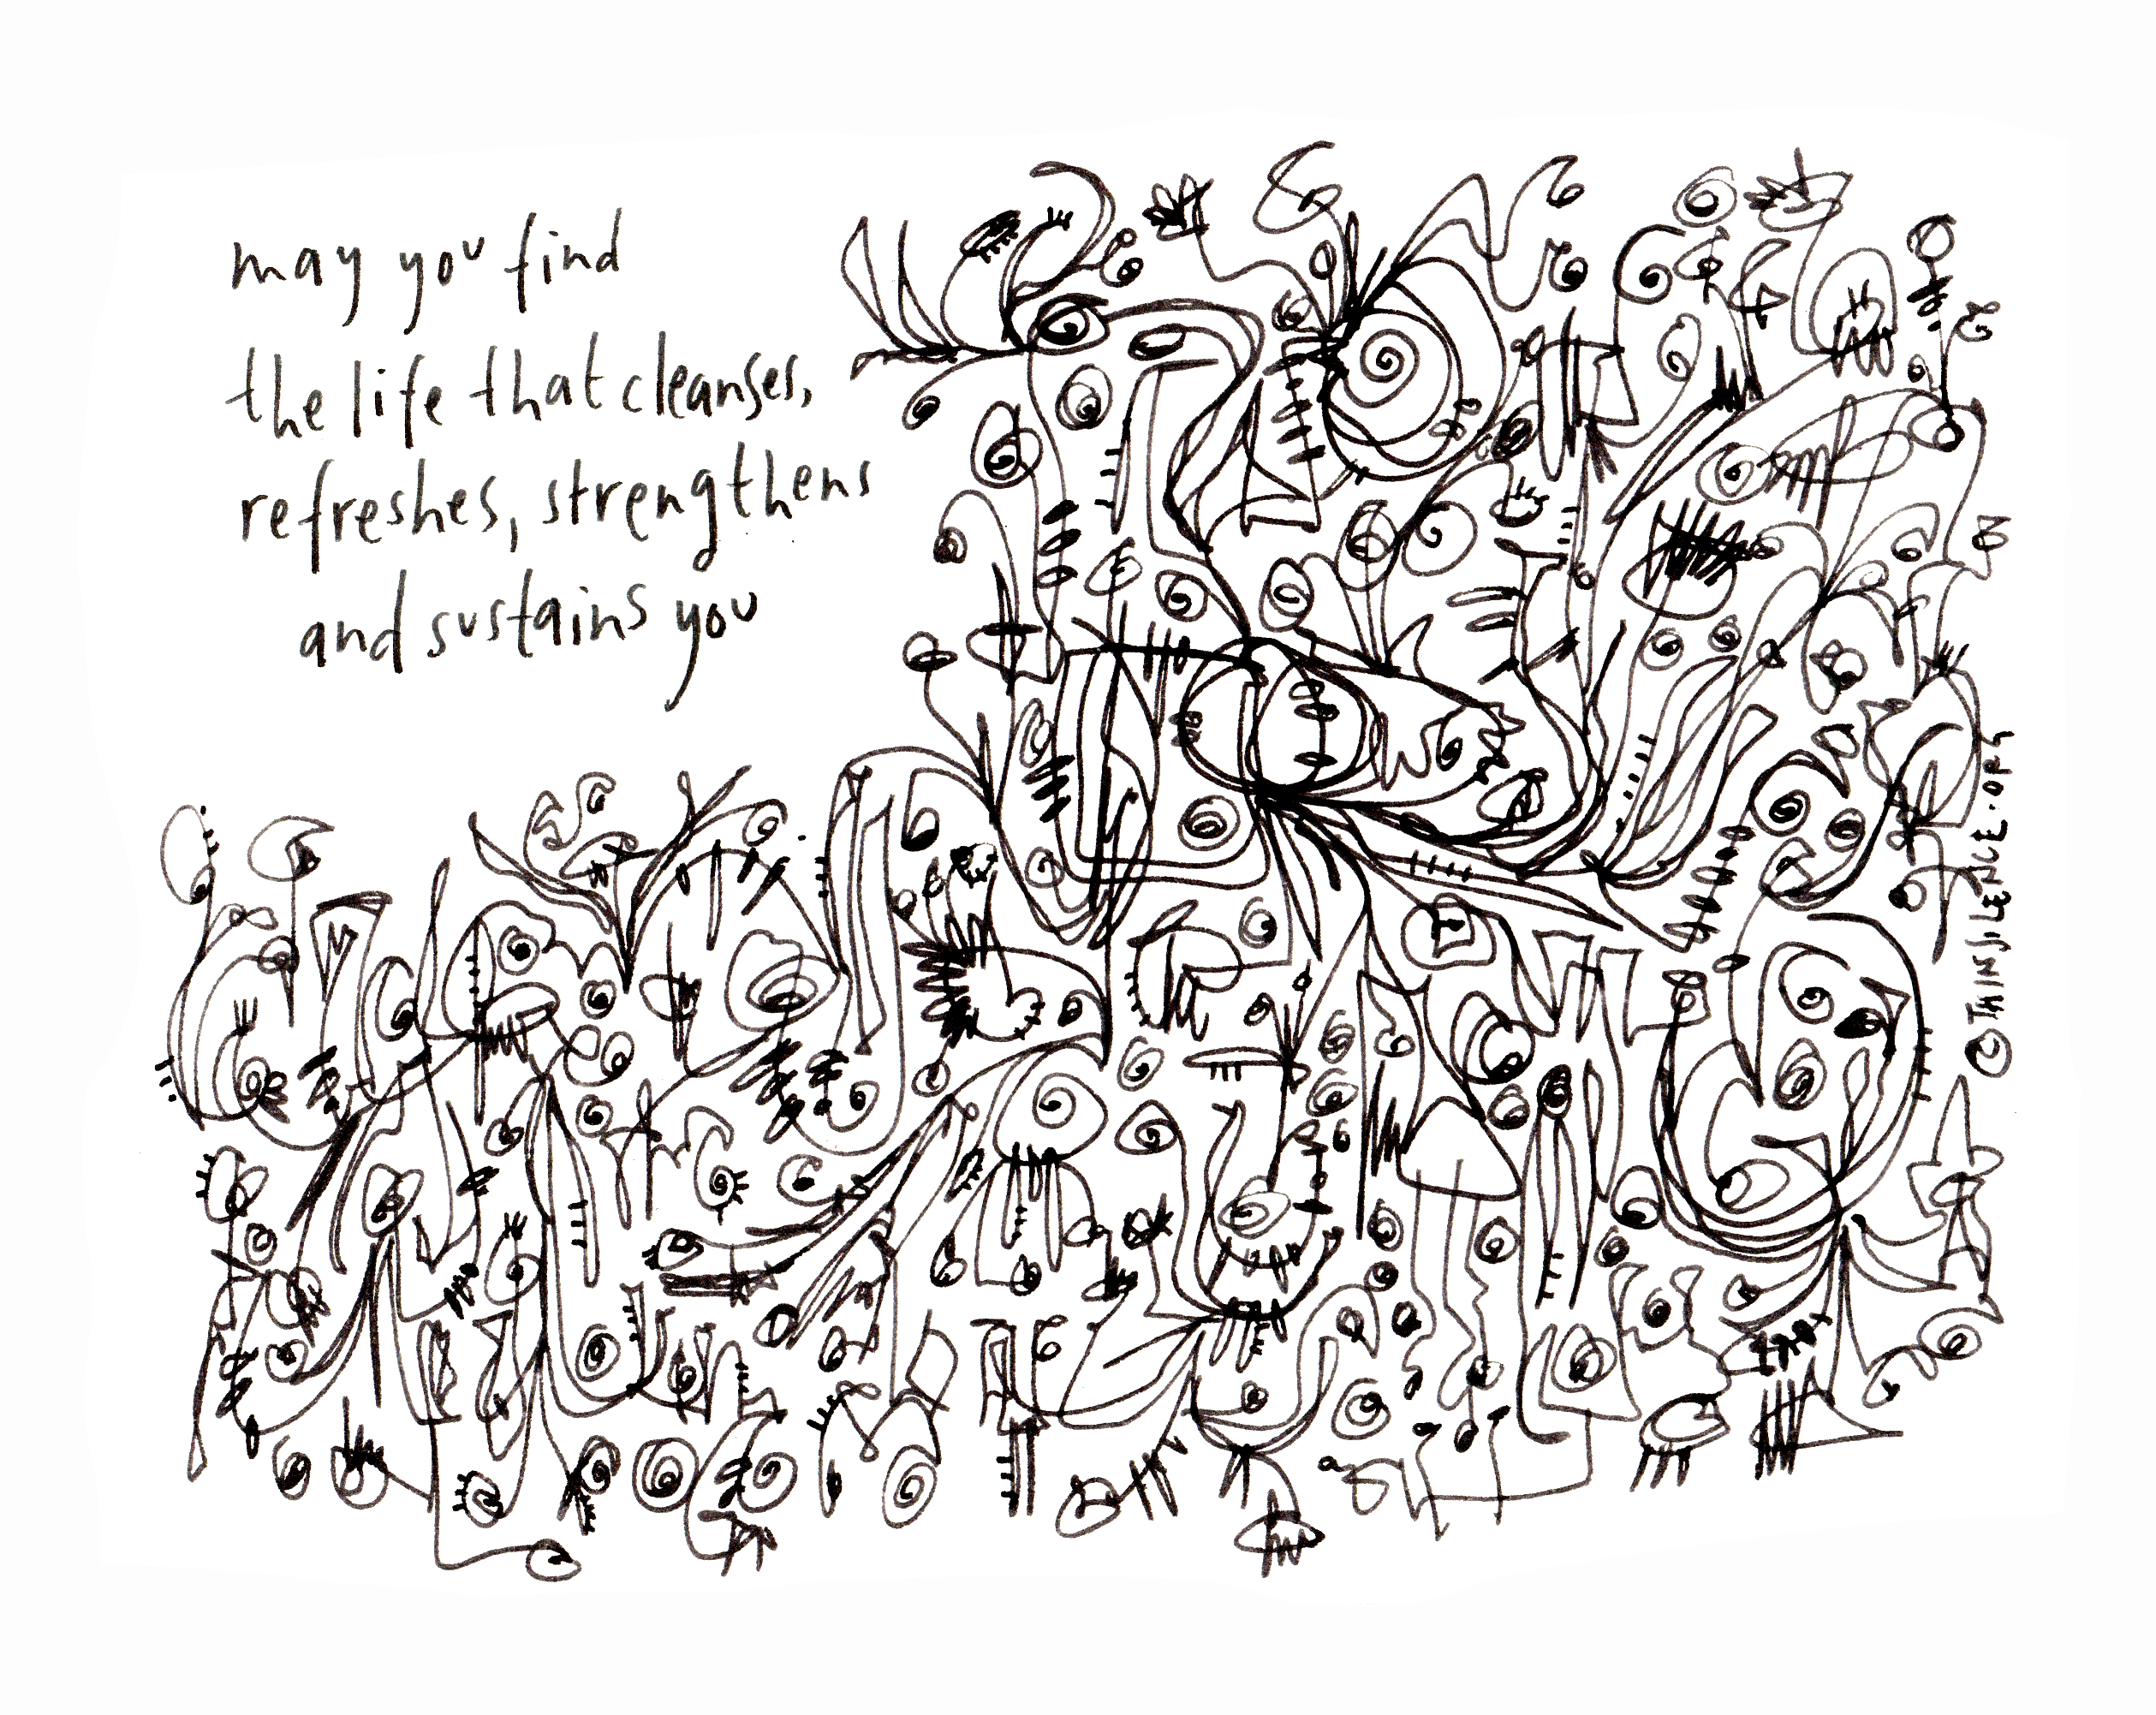 may you find
the life that cleanses,
refreshes, strengthens
and sustains you
©TAINJILENCE.ORG